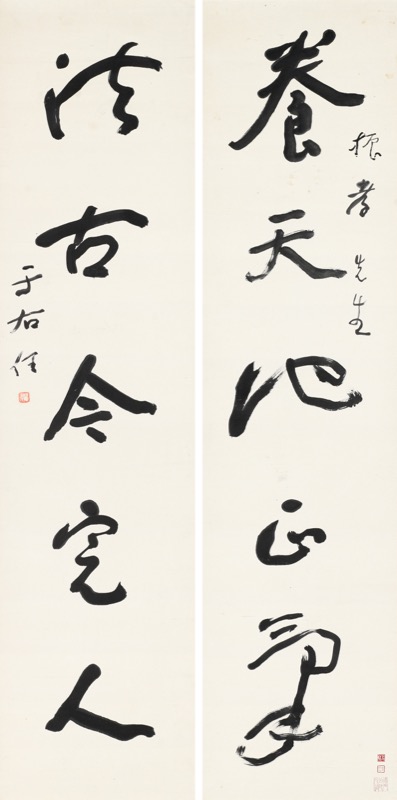 振孝先生
養天地正氣
法古今完人
于右任